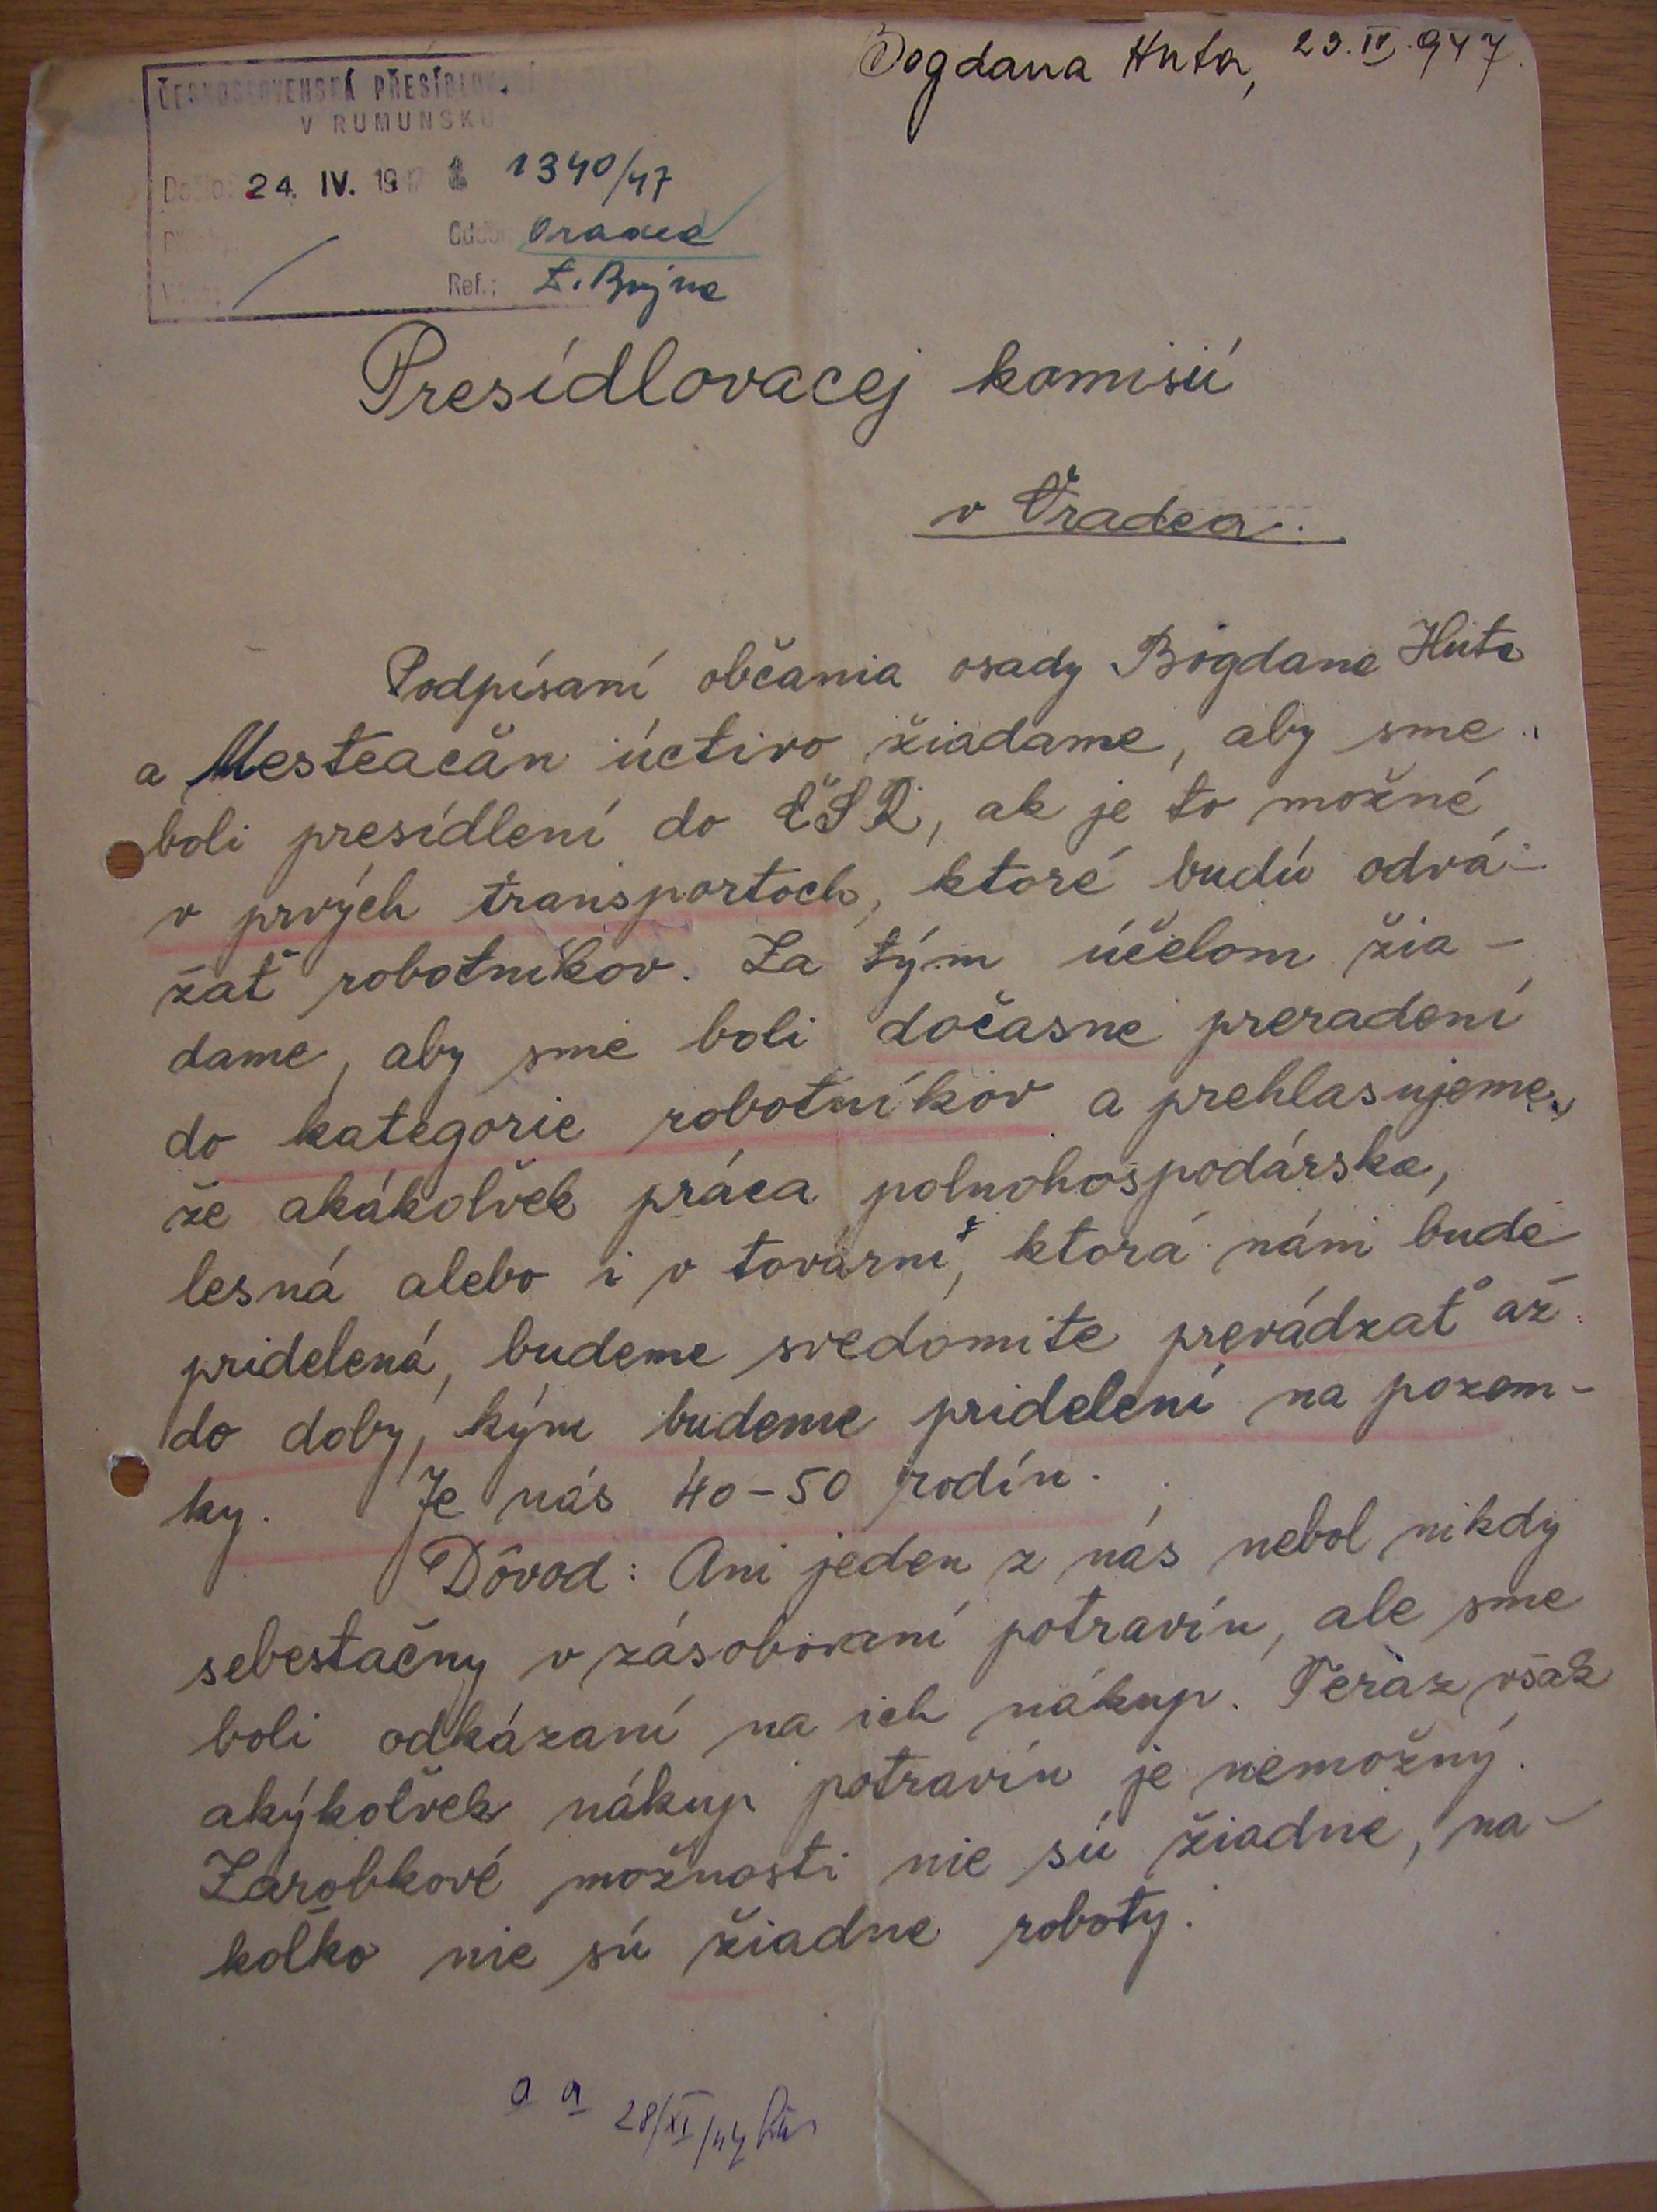 Bogdana Huta, 23. IV. 947.
ČESKOSLOVENSKÁ PŘESÍDLOVACÍ
V RUMUNSKU
Došlo: 24. IV. 1947 1340/47
Odděl. Oradea
Ref.: Z. Bujna
Presídlovacej komisií
v Oradea.
Podpísaní občania osady Bogdana Huta
a Mesteacăn úctivo žiadame, aby sme
boli presídlení do ČSR, ak je to možné
v prvých transportoch, ktoré budú odvá-
žať robotníkov. Za tým účelom žia-
dame, aby sme boli dočasne preradení
do kategorie robotníkov a prehlasujeme,
že akákoľvek práca polnohospodárska,
lesná alebo i v tovarni, ktorá nám bude
pridelená, budeme svedomite prevádzať až
do doby, kým budeme pridelení na pozem-
ky. Je nás 40-50 rodín.
Dôvod: Ani jeden z nás nebol nikdy
sebestačny v zásobovaní potravín, ale sme
boli odkázaní na ich nákup. Teraz však
akýkoľvek nákup potravín je nemožný.
Zárobkové možnosti nie sú žiadne, na-
koľko nie sú žiadne roboty.
a a 28/XI/47